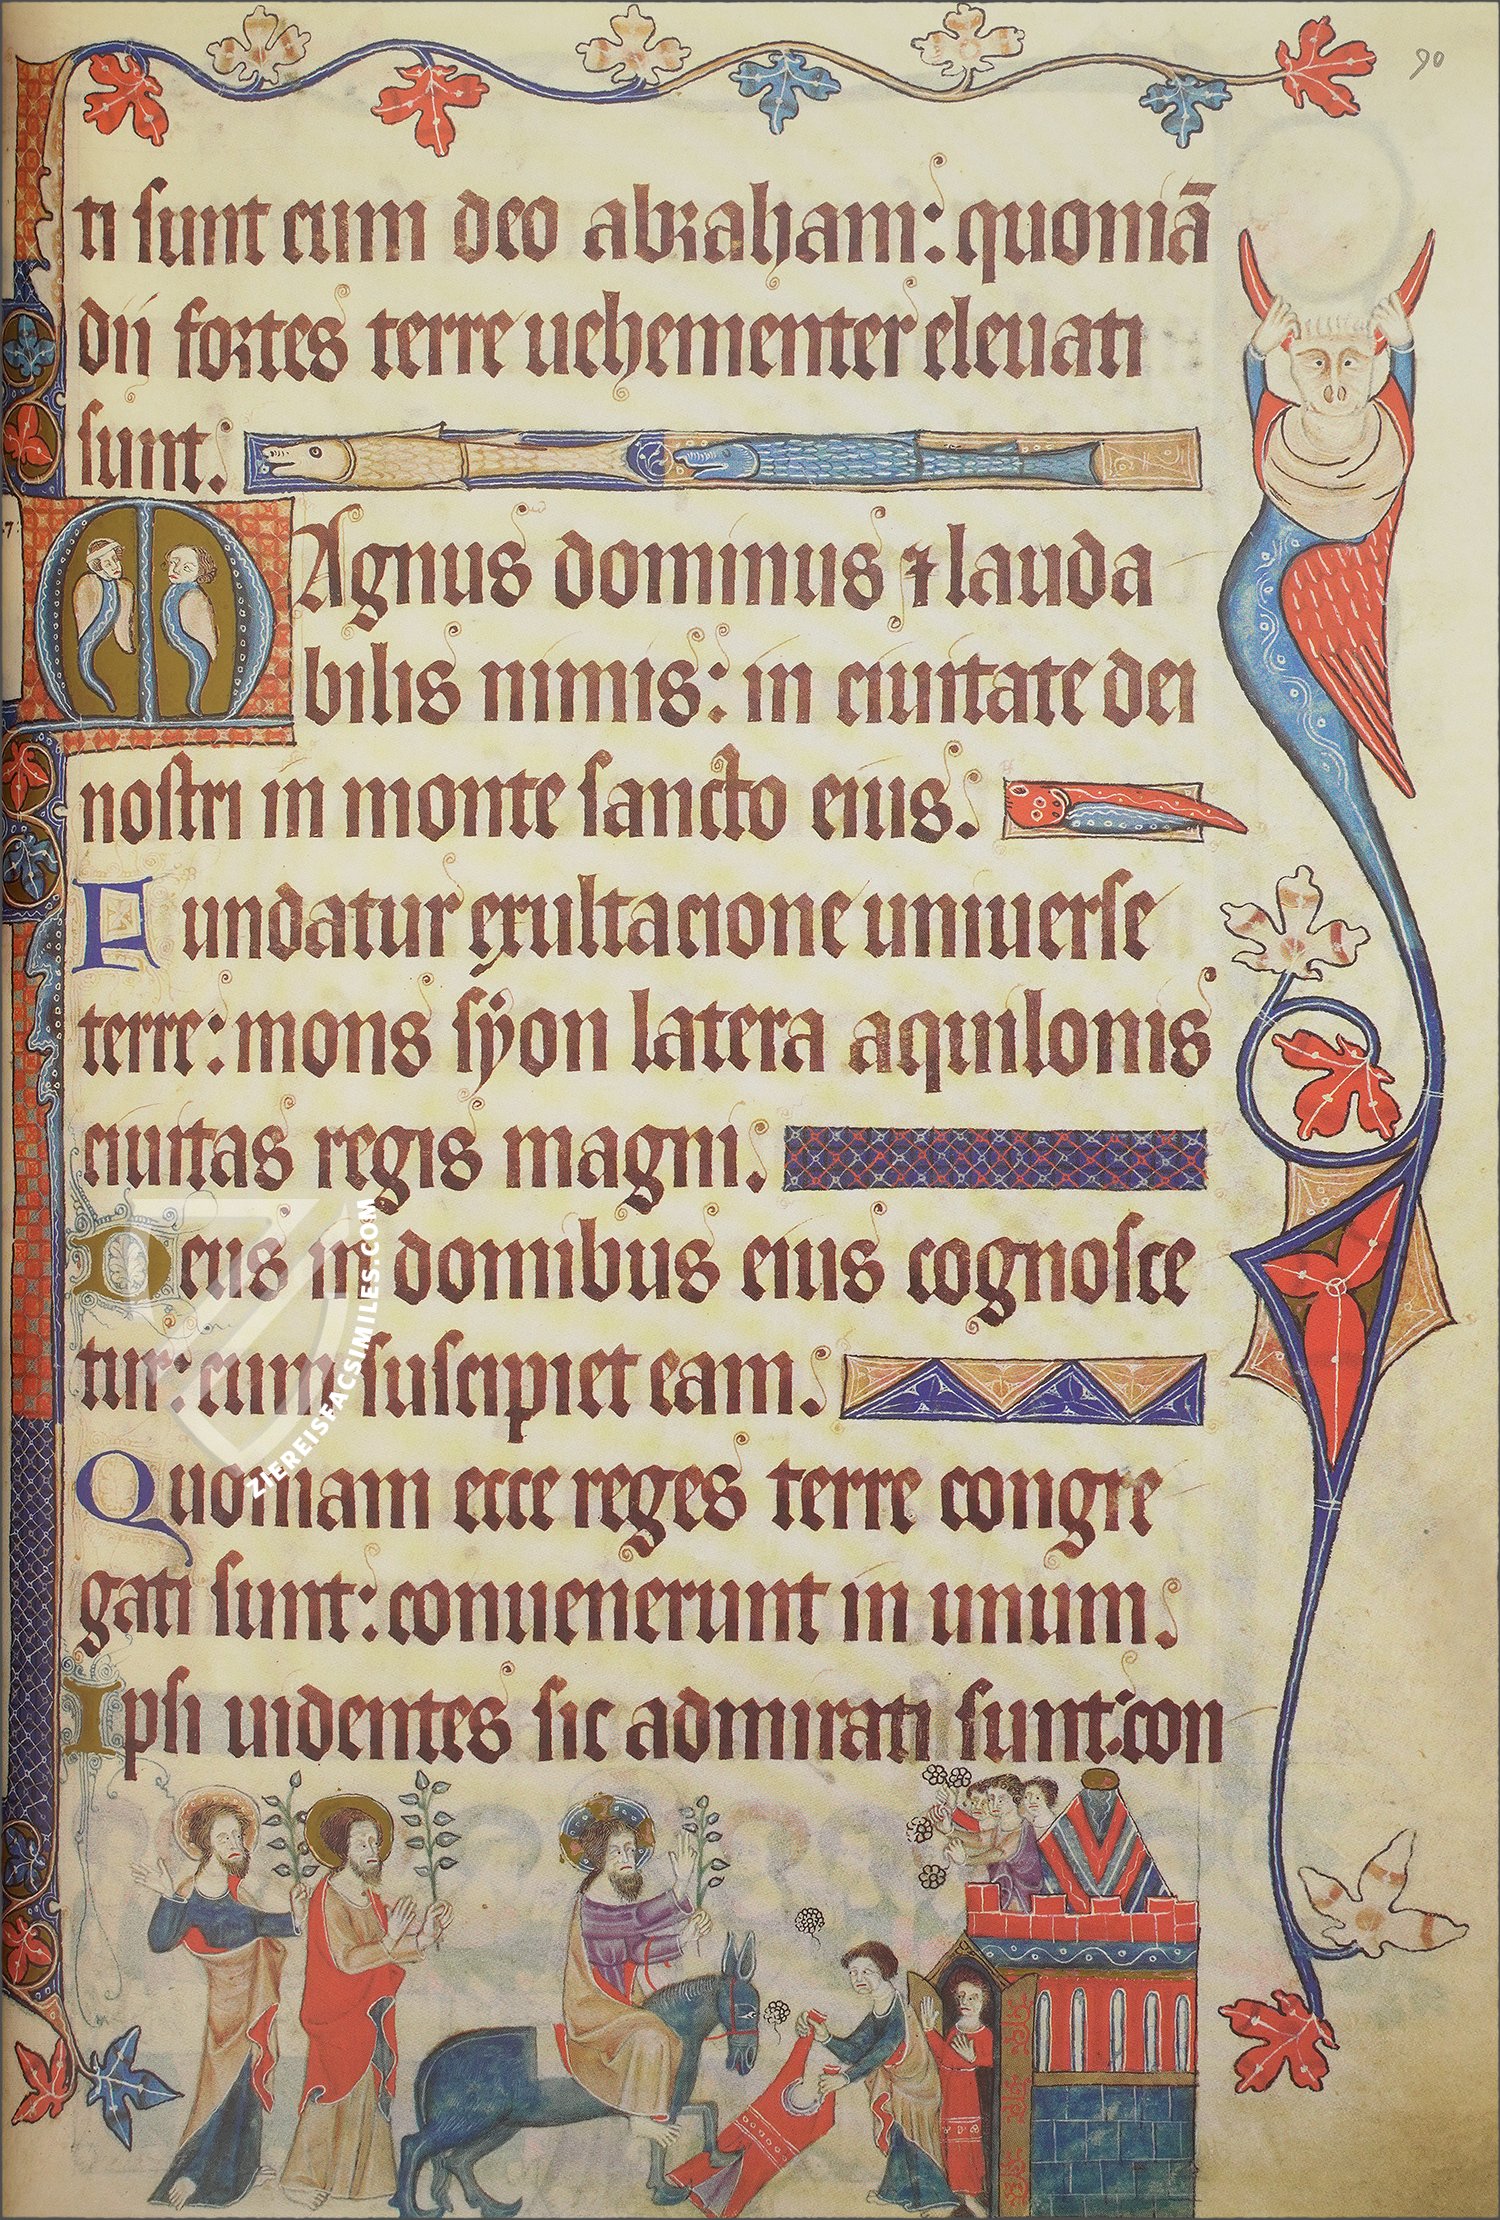 90
ti sunt cum deo abraham: quoniā
dii fortes terre uehementer eleuati
sunt.
Magnus dominus ⁊ lauda
bilis nimis: in ciuitate dei
nostri in monte sancto eius.
Fundatur exultacione uniuerse
terre: mons syon latera aquilonis
ciuitas regis magni.
Deus in domibus eius cognosce
tur: cum suscipiet eam.
Quoniam ecce reges terre congre
gati sunt: conuenerunt in unum.
Ipsi uidentes sic admirati sunt: con
ZIEREISFACSIMILES.COM